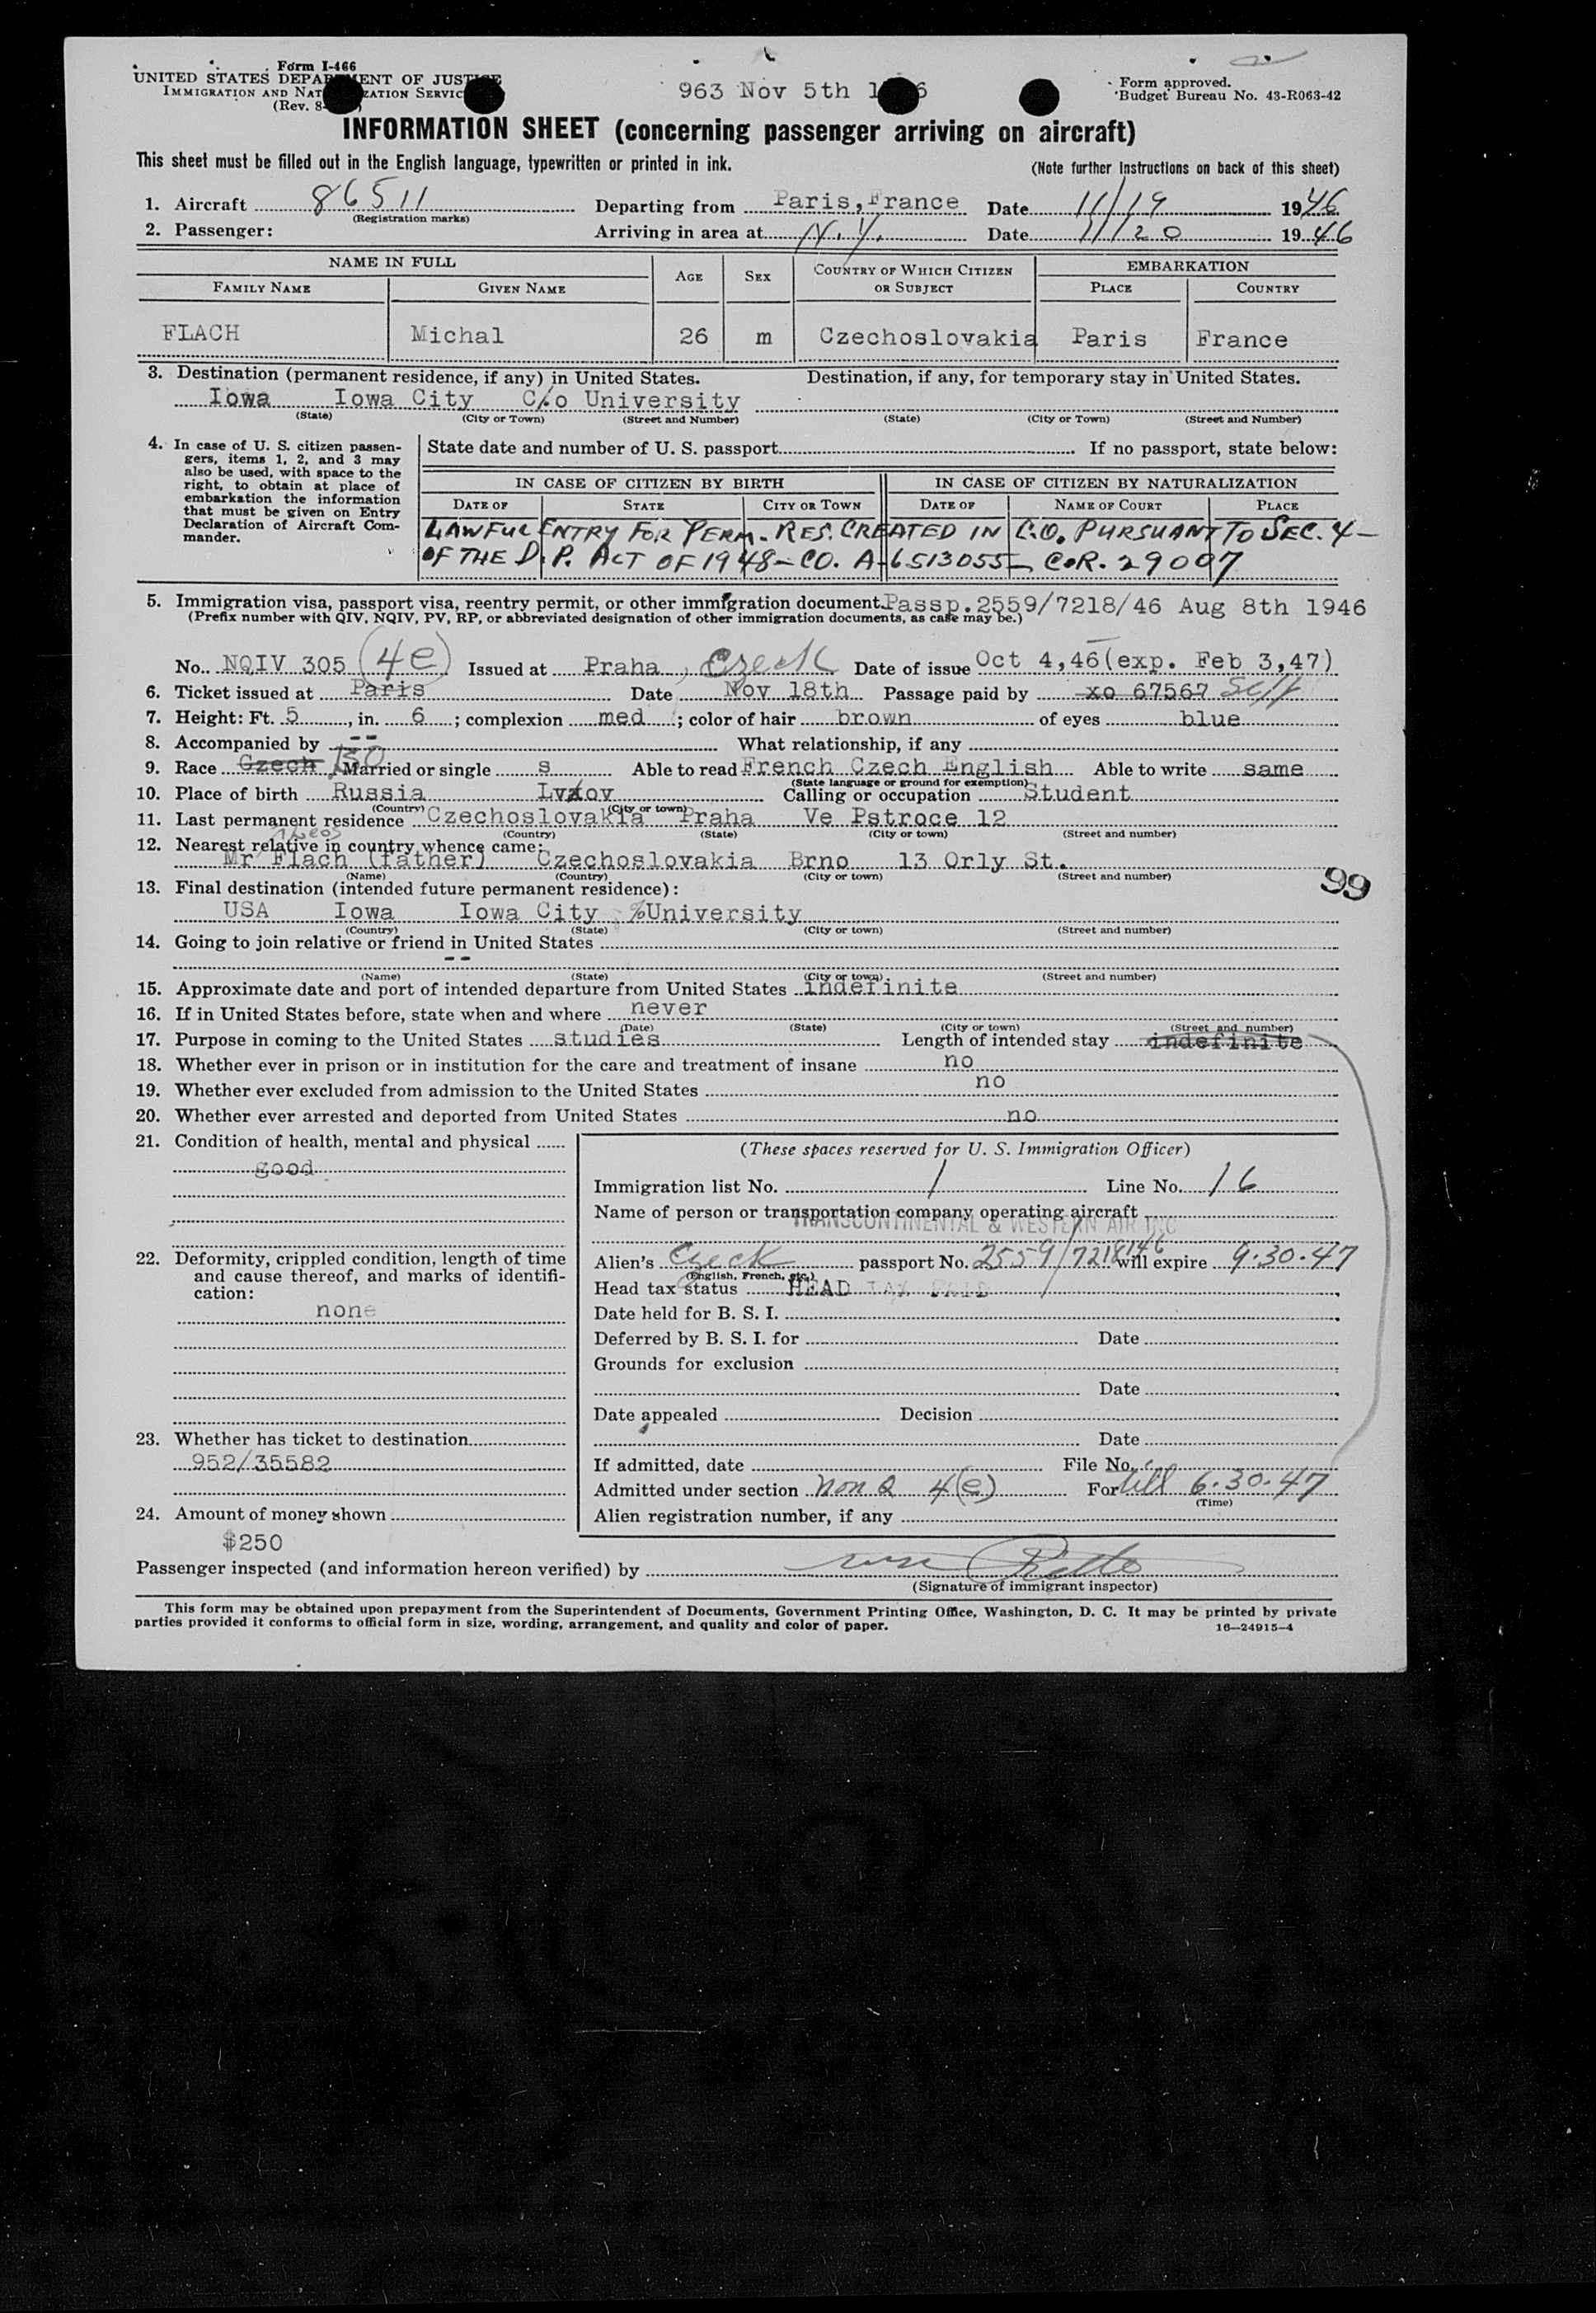 Form I-466
UNITED STATES DEPARTMENT OF JUSTICE
IMMIGRATION AND NATURALIZATION SERVICE
(Rev. 8-
963 Nov 5th 1 6
Form approved.
Budget Bureau No. 43-R063-42
INFORMATION SHEET (concerning passenger arriving on aircraft)
This sheet must be filled out in the English language, typewritten or printed in ink. (Note further instructions on back of this sheet)
1. Aircraft 86511 Departing from Paris, France Date 11/19 1946
(Registration marks)
2. Passenger: Arriving in area at N.Y. Date 11/20 1946
NAME IN FULL AGE SEX COUNTRY OF WHICH CITIZEN OR SUBJECT EMBARKATION
FAMILY NAME GIVEN NAME PLACE COUNTRY
FLACH Michal 26 m Czechoslovakia Paris France
3. Destination (permanent residence, if any) in United States. Destination, if any, for temporary stay in United States.
Iowa Iowa City C/o University
(State) (City or Town) (Street and Number) (State) (City or Town) (Street and Number)
4. In case of U. S. citizen passengers, items 1, 2, and 3 may also be used, with space to the right, to obtain at place of embarkation the information that must be given on Entry Declaration of Aircraft Commander.
State date and number of U. S. passport If no passport, state below:
IN CASE OF CITIZEN BY BIRTH IN CASE OF CITIZEN BY NATURALIZATION
DATE OF STATE CITY OR TOWN DATE OF NAME OF COURT PLACE
LAWFUL ENTRY FOR PERM. RES. CREATED IN C.O. PURSUANT TO SEC. 4-
OF THE D.P. ACT OF 1948-CO. A-6513055- COR. 29007
5. Immigration visa, passport visa, reentry permit, or other immigration document. Passp. 2559/7218/46 Aug 8th 1946
(Prefix number with QIV, NQIV, PV, RP, or abbreviated designation of other immigration documents, as case may be.)
No. NQIV 305 (4e) Issued at Praha, Czech Date of issue Oct 4,46(exp. Feb 3,47)
6. Ticket issued at Paris Date Nov 18th Passage paid by xo 67567 Self
7. Height: Ft. 5, in. 6; complexion med; color of hair brown of eyes blue
8. Accompanied by -- What relationship, if any
9. Race Czech Married or single s Able to read French Czech English Able to write same
(State language or ground for exemption)
10. Place of birth Russia Lvov Calling or occupation Student
(Country) (City or town)
11. Last permanent residence Czechoslovakia Praha Ve Pstroce 12
(Country) (State) (City or town) (Street and number)
12. Nearest relative in country whence came:
Mr Flach (father) Czechoslovakia Brno 13 Orly St.
(Name) (Country) (City or town) (Street and number)
99
13. Final destination (intended future permanent residence):
USA Iowa Iowa City %University
(Country) (State) (City or town) (Street and number)
14. Going to join relative or friend in United States
--
(Name) (State) (City or town) (Street and number)
15. Approximate date and port of intended departure from United States indefinite
16. If in United States before, state when and where never
(Date) (State) (City or town) (Street and number)
17. Purpose in coming to the United States studies Length of intended stay indefinite
18. Whether ever in prison or in institution for the care and treatment of insane no
19. Whether ever excluded from admission to the United States no
20. Whether ever arrested and deported from United States no
21. Condition of health, mental and physical
good
22. Deformity, crippled condition, length of time and cause thereof, and marks of identification:
none
23. Whether has ticket to destination
952/35582
24. Amount of money shown
$250
(These spaces reserved for U. S. Immigration Officer)
Immigration list No. 1 Line No. 16
Name of person or transportation company operating aircraft
TRANSCONTINENTAL & WESTERN AIR INC
Alien's Czech passport No. 2559/7218/46 will expire 9.30.47
(English, French, etc.)
Head tax status HEAD TAX PAID
Date held for B. S. I.
Deferred by B. S. I. for Date
Grounds for exclusion
Date
Date appealed Decision
Date
If admitted, date File No.
Admitted under section Non Q 4(e) For till 6.30.47
(Time)
Alien registration number, if any
Passenger inspected (and information hereon verified) by
(Signature of immigrant inspector)
This form may be obtained upon prepayment from the Superintendent of Documents, Government Printing Office, Washington, D. C. It may be printed by private
parties provided it conforms to official form in size, wording, arrangement, and quality and color of paper.
16—24915-4